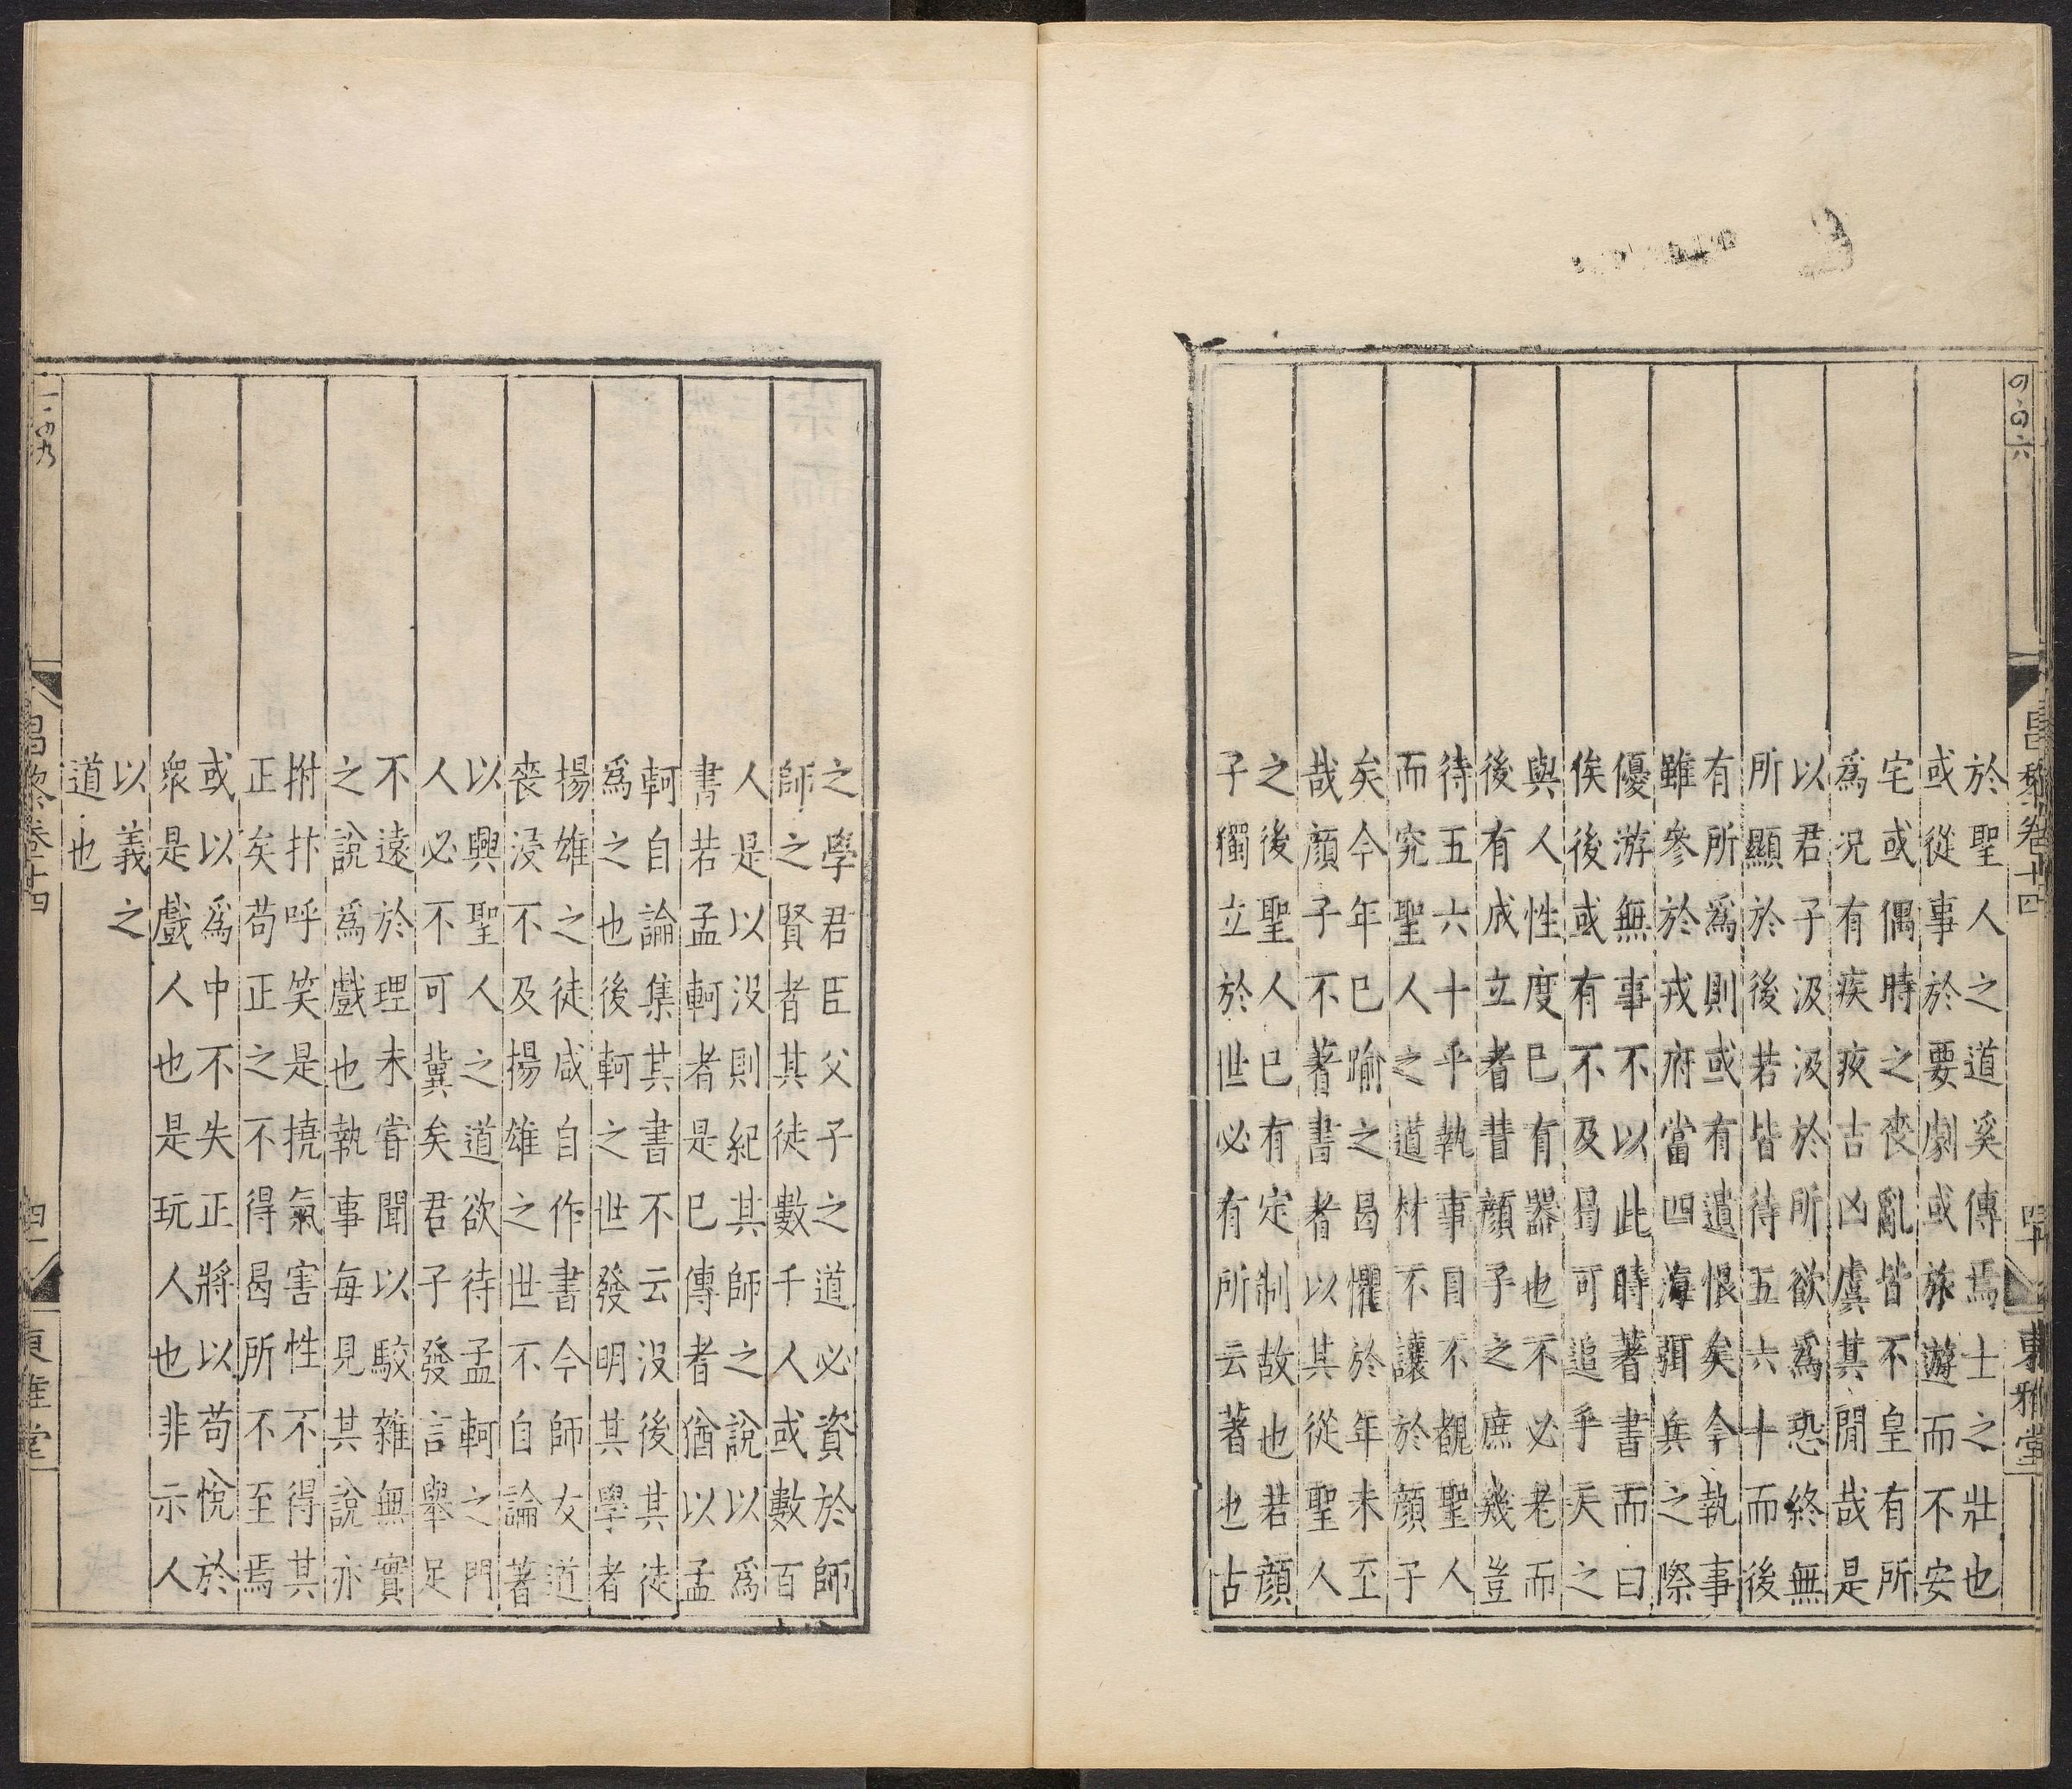 昌黎卷十四 四十 東雅堂
於聖人之道奚傳焉士之壯也
或從事於要劇或旅遊而不安
宅或偶時之喪亂皆不皇有所
爲况有疾疚吉凶虞其閒哉是
以君子汲汲於所欲爲恐終無
所顯於後若皆待五六十而後
有所爲則或有遺恨矣今執事
雖參於戎府當四海弭兵之際
優游無事不以此時著書而曰
俟後或有不及曷可追乎天之
與人性度已有器也不必老而
後有成立者昔顔子之庶幾豈
待五六十乎執事目不覩聖人
而究聖人之道材不讓於顔子
矣今年已喻之曷懼於年未至
哉顔子不著書者以其從聖人
之後聖人已有定制故也若顔
子獨立於世必有所云著也古
之學君臣父子之道必資於師
師之賢者其徒數千人或數百
人是以没則紀其師之說以爲
書若孟軻者是已傳者猶以孟
軻自論集其書不云没後其徒
爲之也後軻之世發明其學者
揚雄之徒咸自作書今師友道
喪浸不及揚雄之世不自論著
以興聖人之道欲待孟軻之門
人必不可冀矣君子發言舉足
不遠於理未嘗聞以駁雜無實
之說爲戲也執事每見其說亦
拊抃呼笑是撓氣害性不得其
正矣苟正之不得曷所不至焉
或以爲中不失正將以苟悅於
衆是戲人也是玩人也非示人
以義之
道也
昌黎卷十四 四十一 東雅堂